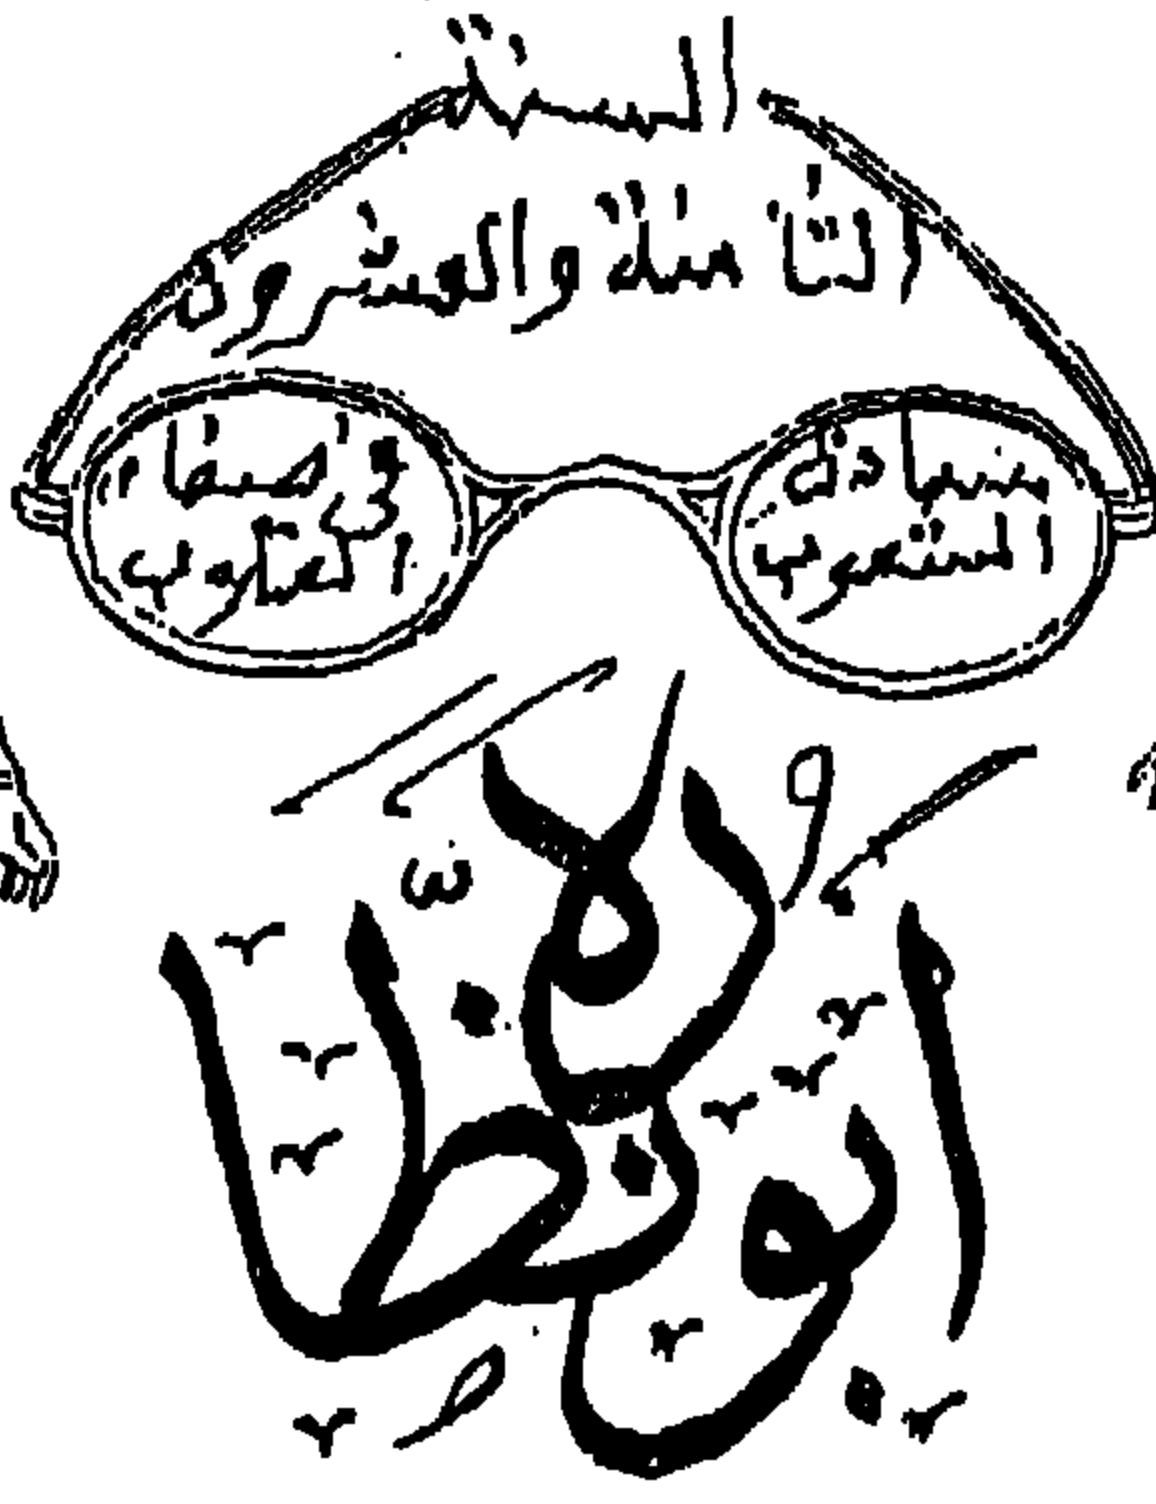 السنة
الثامنة والعشرون
الشعوب
في صفاء
القلوب
ابو نظاره